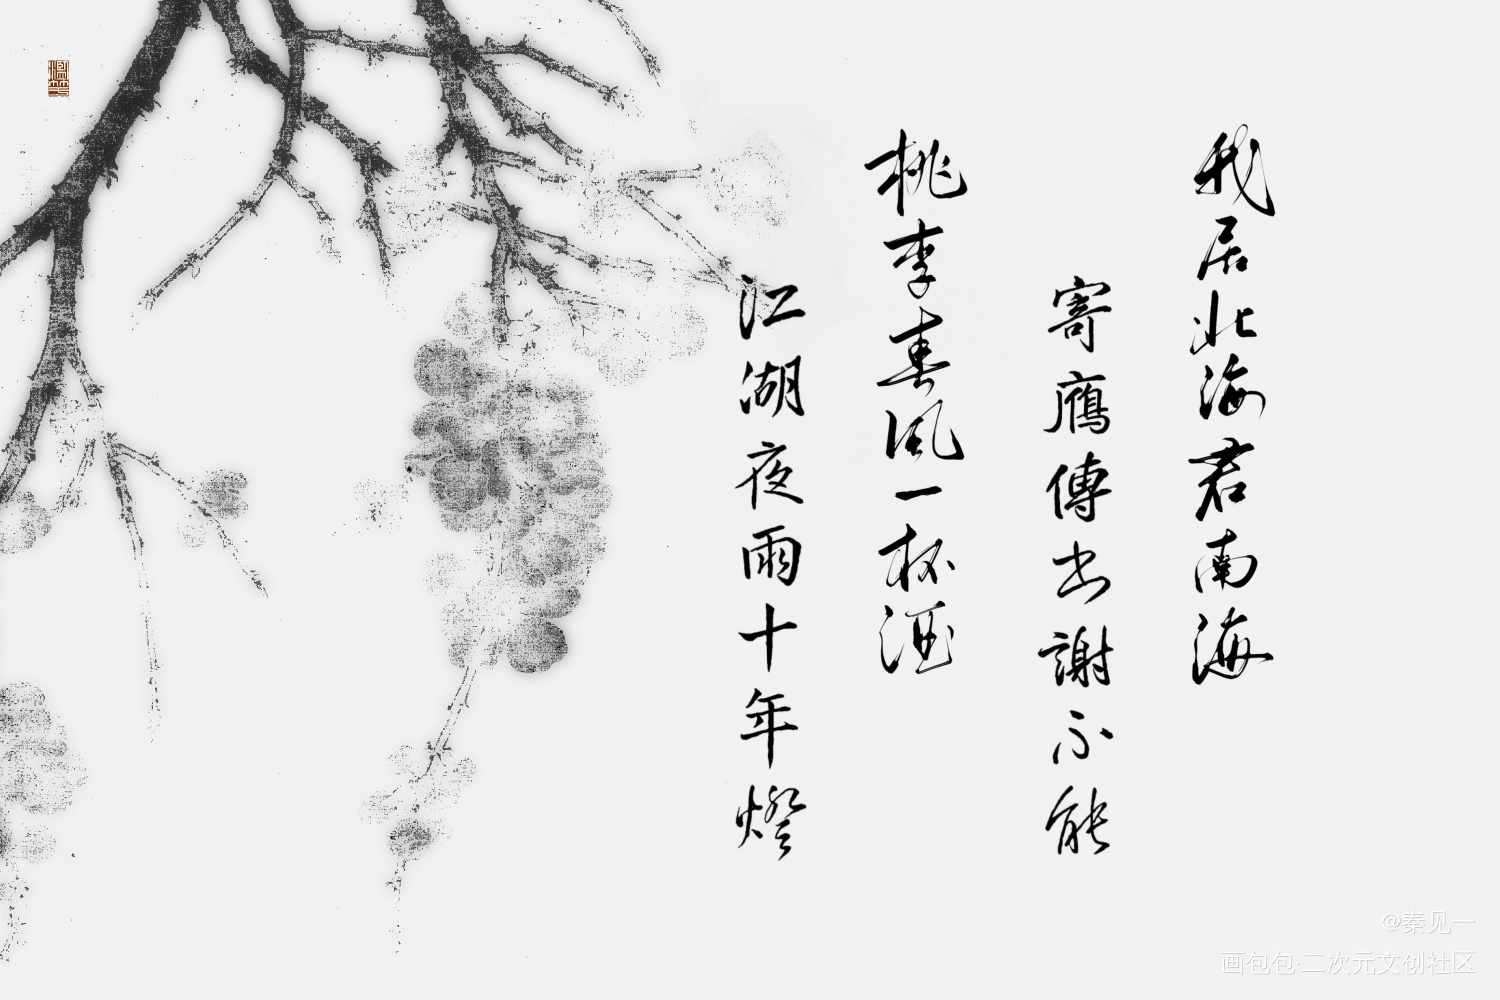 我居北海君南海
寄鴈傳書謝不能
桃李春風一杯酒
江湖夜雨十年燈
@秦见一
画包包·二次元文创社区